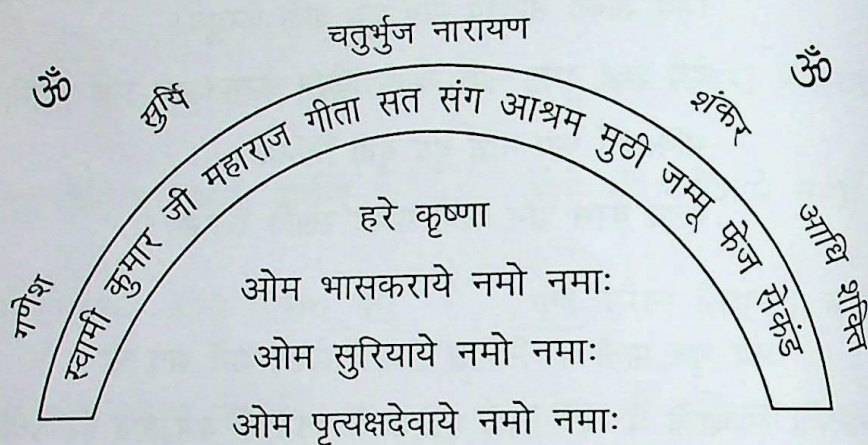 चतुर्भुज नारायण
ॐ
ॐ
सुर्यि
शंकर
गणेश
आधि शक्ति
स्वामी कुमार जी महाराज गीता सत संग आश्रम मुठी जम्मू फेज सेकंड
हरे कृष्णा
ओम भासकराये नमो नमाः
ओम सुरियाये नमो नमाः
ओम पृत्यक्षदेवाये नमो नमाः